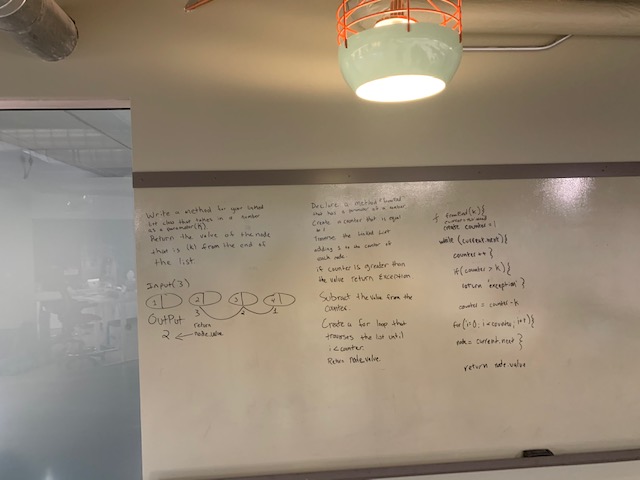 Write a method for your Linked
List class that takes in a number
as a parameter (k).
Return the value of the node
that is (k) from the end of
the list.
Input(3)
1 2 3 4
3 2 1
OutPut
return
2 node.value
Declare a method
that has a parameter of a number
Create a counter that is equal
to 1
Traverse the Linked List
adding 1 to the counter at
each node.
if counter is greater than
the value return Exception
Subtract the value from the
counter.
Create a for loop that
traverses the list until
i < counter.
Return Node.value.
f fromEnd(k){
create counter = 1
while (current.next){
counter ++ }
if(counter > k){
return 'exception' }
counter = counter - k
for(i=0; i < counter; i++){
node = current.next }
return node.value